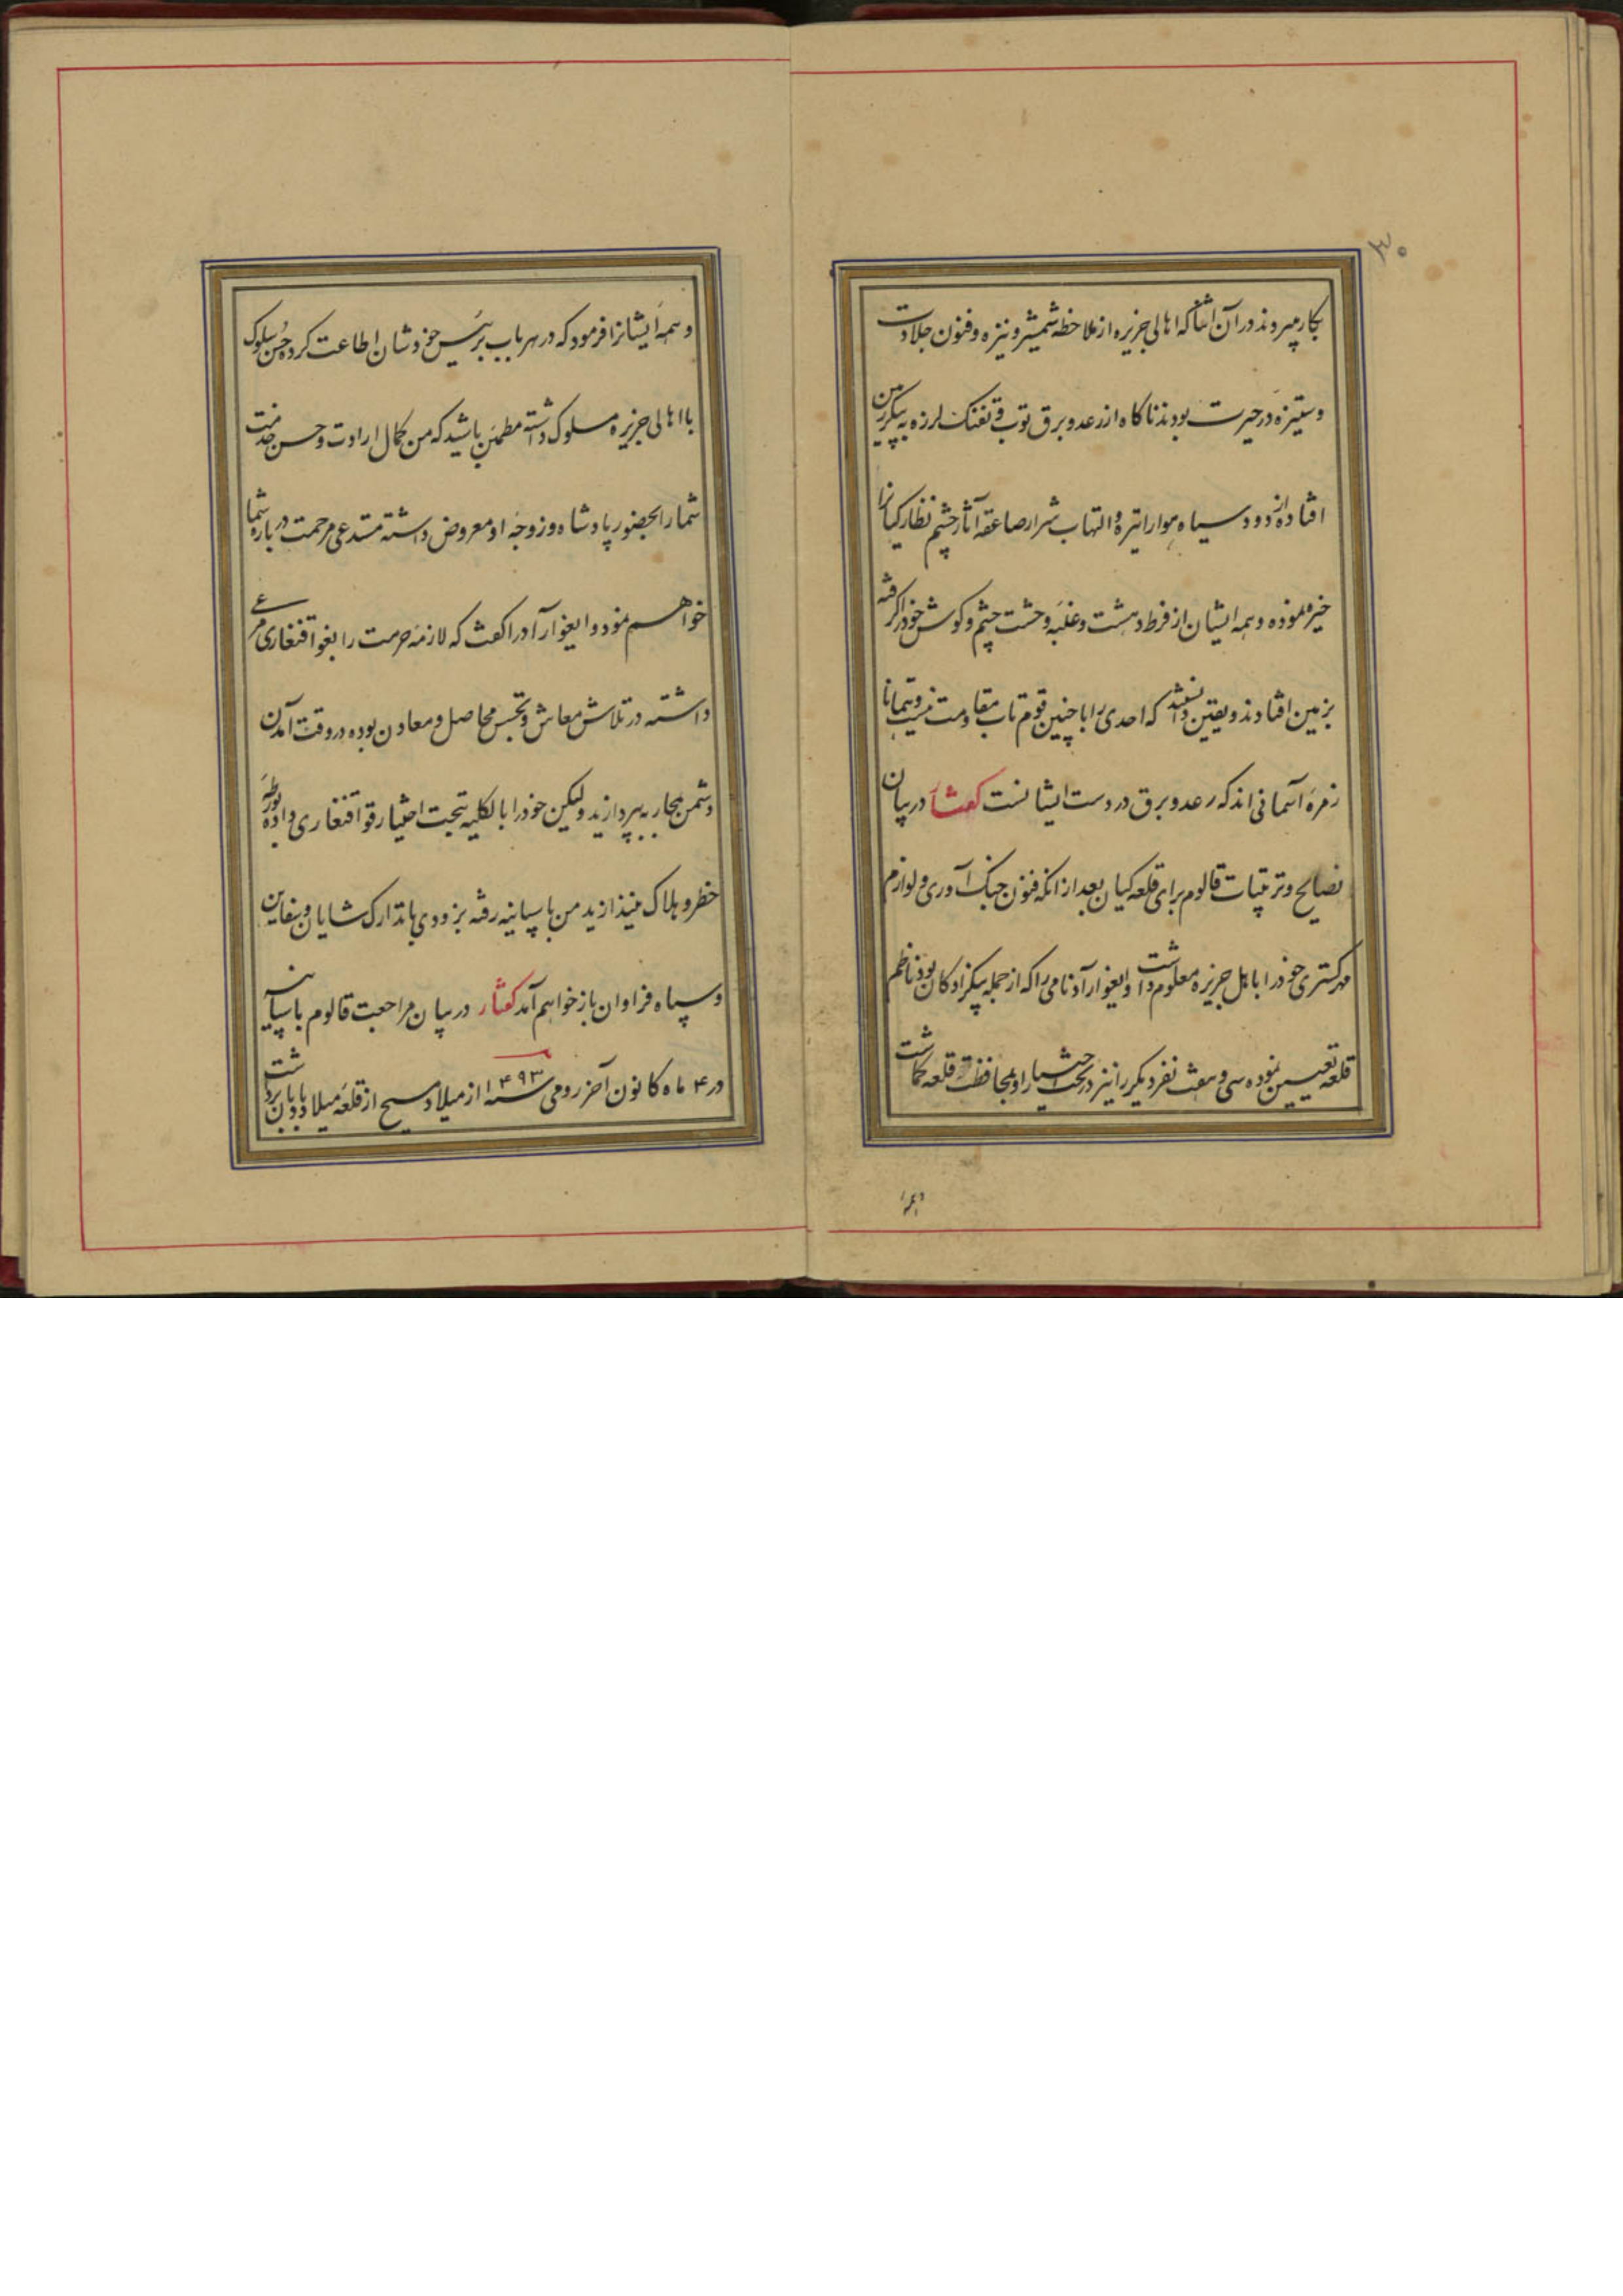 ۳۰
بکار میبردند در آن اثنا که اهالی جزیره از ملاحظه شمشیر و نیزه و فنون جلادت
و ستیزه در حیرت بودند ناکاه از رعد و برق توپ و تفنک لرزه به پیکر زمین
افتاد از دود سیاه هوا را تیره و التهاب شرار صاعقه آثار چشم نظارکیانرا
خیره نموده و همه ایشان از فرط دهشت و غلبه وحشت چشم و کوش خود را کرفته
بزمین افتادند و یقین دانستند که احدی را با چنین قوم تاب مقاومت نیست و همانا
زمره آسمانی اند که رعد و برق در دست ایشانست کفتار در بیان
نصایح و ترتیبات قالوم برای قلعه کیان بعد از انکه فنون جنک آوری و لوازم
مهرکستری خود را با اهل جزیره معلوم داشت دایغوار آد نامی را که از جمله بیکزادکان بود ناظم
قلعه تعیین نموده سی و هفت نفر دیکر را نیز در تحت اختیار او بمحافظت قلعه کماشت
و همه
و همه ایشانرا فرمود که در هر باب برئیس خودشان اطاعت کرده حسن سلوک
با اهالی جزیره مسلوک داشته مطمئن باشید که من کمال ارادت و حسن خدمت
شما را بحضور پادشاه و زوجه او معروض داشته مستدعی مرحمت در باره شما
خواهم نمود و دایغوار آد را کفت که لازمه حرمت را بغواقنغاری مرعی
داشته در تلاش معاش و تجسس محاصل و معادن بوده در وقت آمدن
دشمن بمحاربه بپردازید ولیکن خود را بالکلیه بتحت اختیار قواقنغاری داده بورطه
خطر و هلاک نیندازید من باسپانیه رفته بزودی با تدارک شایان و سفاین
و سپاه فراوان باز خواهم آمد کفتار در بیان مراجعت قالوم باسپانیه
در ۴ ماه کانون آخر رومی سنه ۱۴۹۳ از میلاد مسیح از قلعه میلاد بادبان برداشت